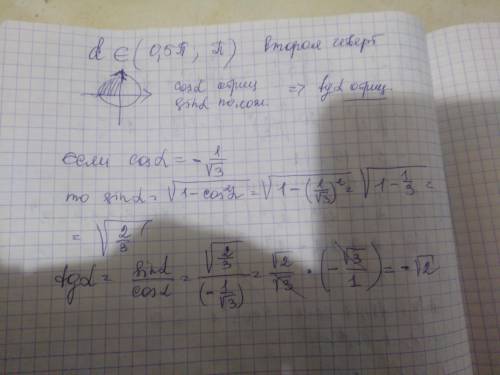 α ∈ (0,5π, π) второй четверт
cosα отриц
sinα полож. => tgα отриц
если cosα = -1/√3
то sinα = √(1-cos²α) = √(1-(1/√3)²) = √(1-1/3) =
= √(2/3)
tgα = sinα/cosα = √(2/3)/(-1/√3) = √2/√3 · (-√3/1) = -√2